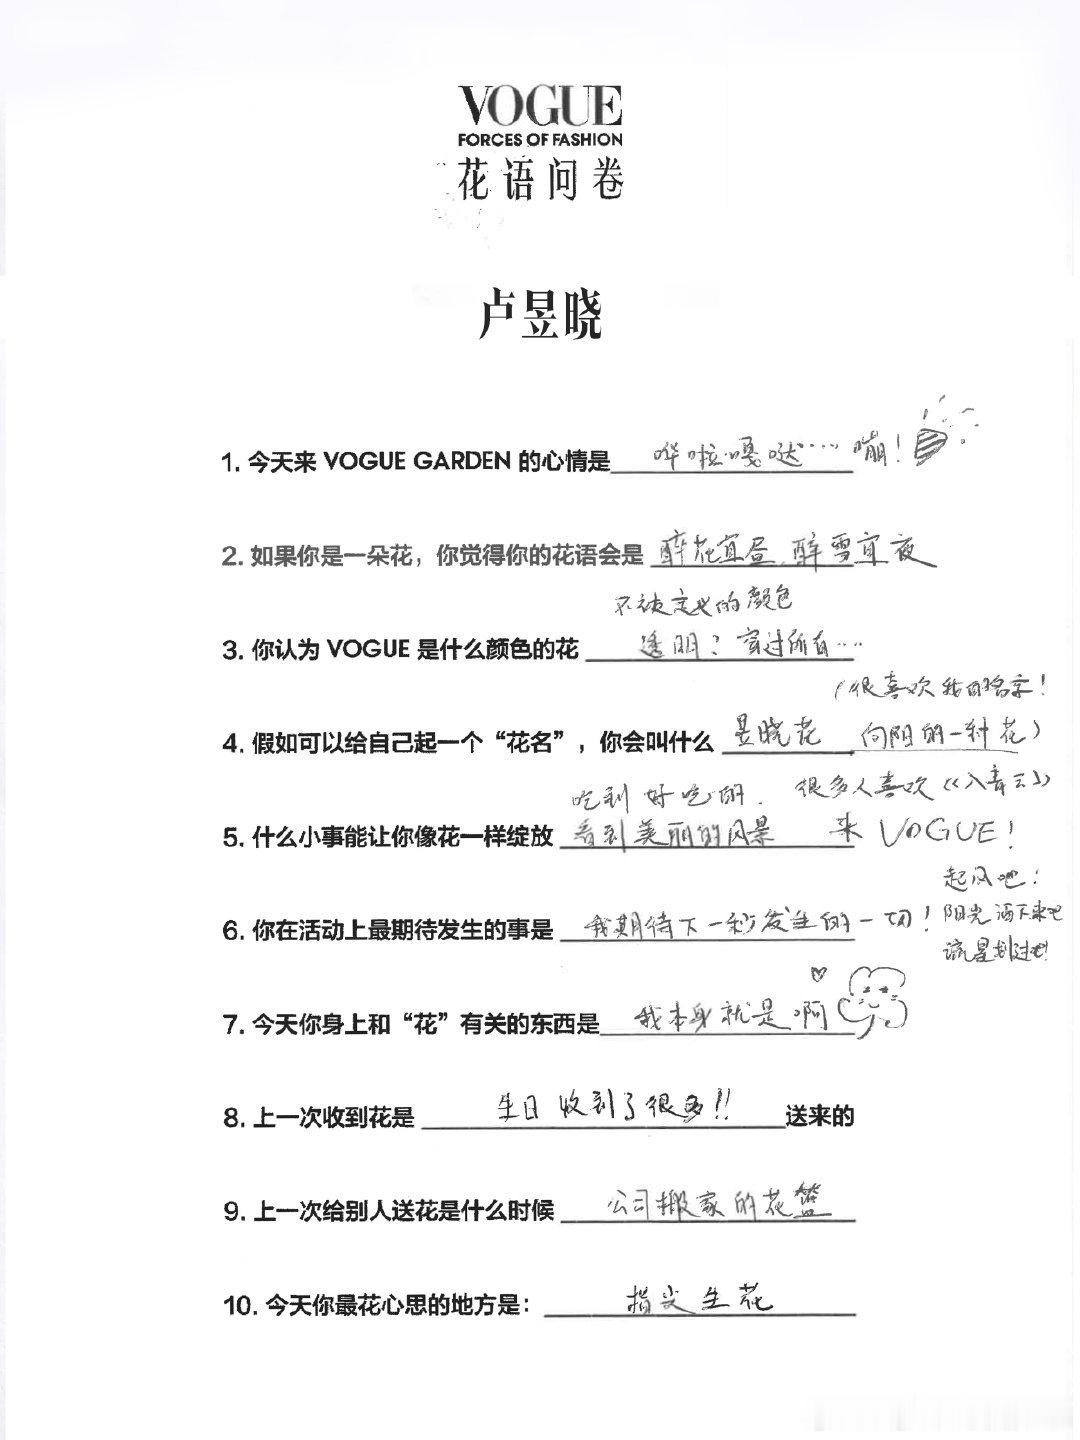 VOGUE
FORCES OF FASHION
花语问卷
卢昱晓
1. 今天来 VOGUE GARDEN 的心情是 哗啦嘎哒…… 嘣！
2. 如果你是一朵花，你觉得你的花语会是 醉花宜昼，醉雪宜夜
不被定义的颜色
3. 你认为 VOGUE 是什么颜色的花 透明？穿过所有…
（很喜欢我的名字！
4. 假如可以给自己起一个“花名”，你会叫什么 昱晓花 向阳的一种花）
吃到好吃的. 很多人喜欢《入青云》
5. 什么小事能让你像花一样绽放 看到美丽的风景 来 VOGUE！
起风吧！
6. 你在活动上最期待发生的事是 我期待下一秒发生的一切！阳光洒下来吧
流星划过吧！
7. 今天你身上和“花”有关的东西是 我本身就是啊
8. 上一次收到花是 生日收到了很多!! 送来的
9. 上一次给别人送花是什么时候 公司搬家的花篮
10. 今天你最花心思的地方是： 指尖生花